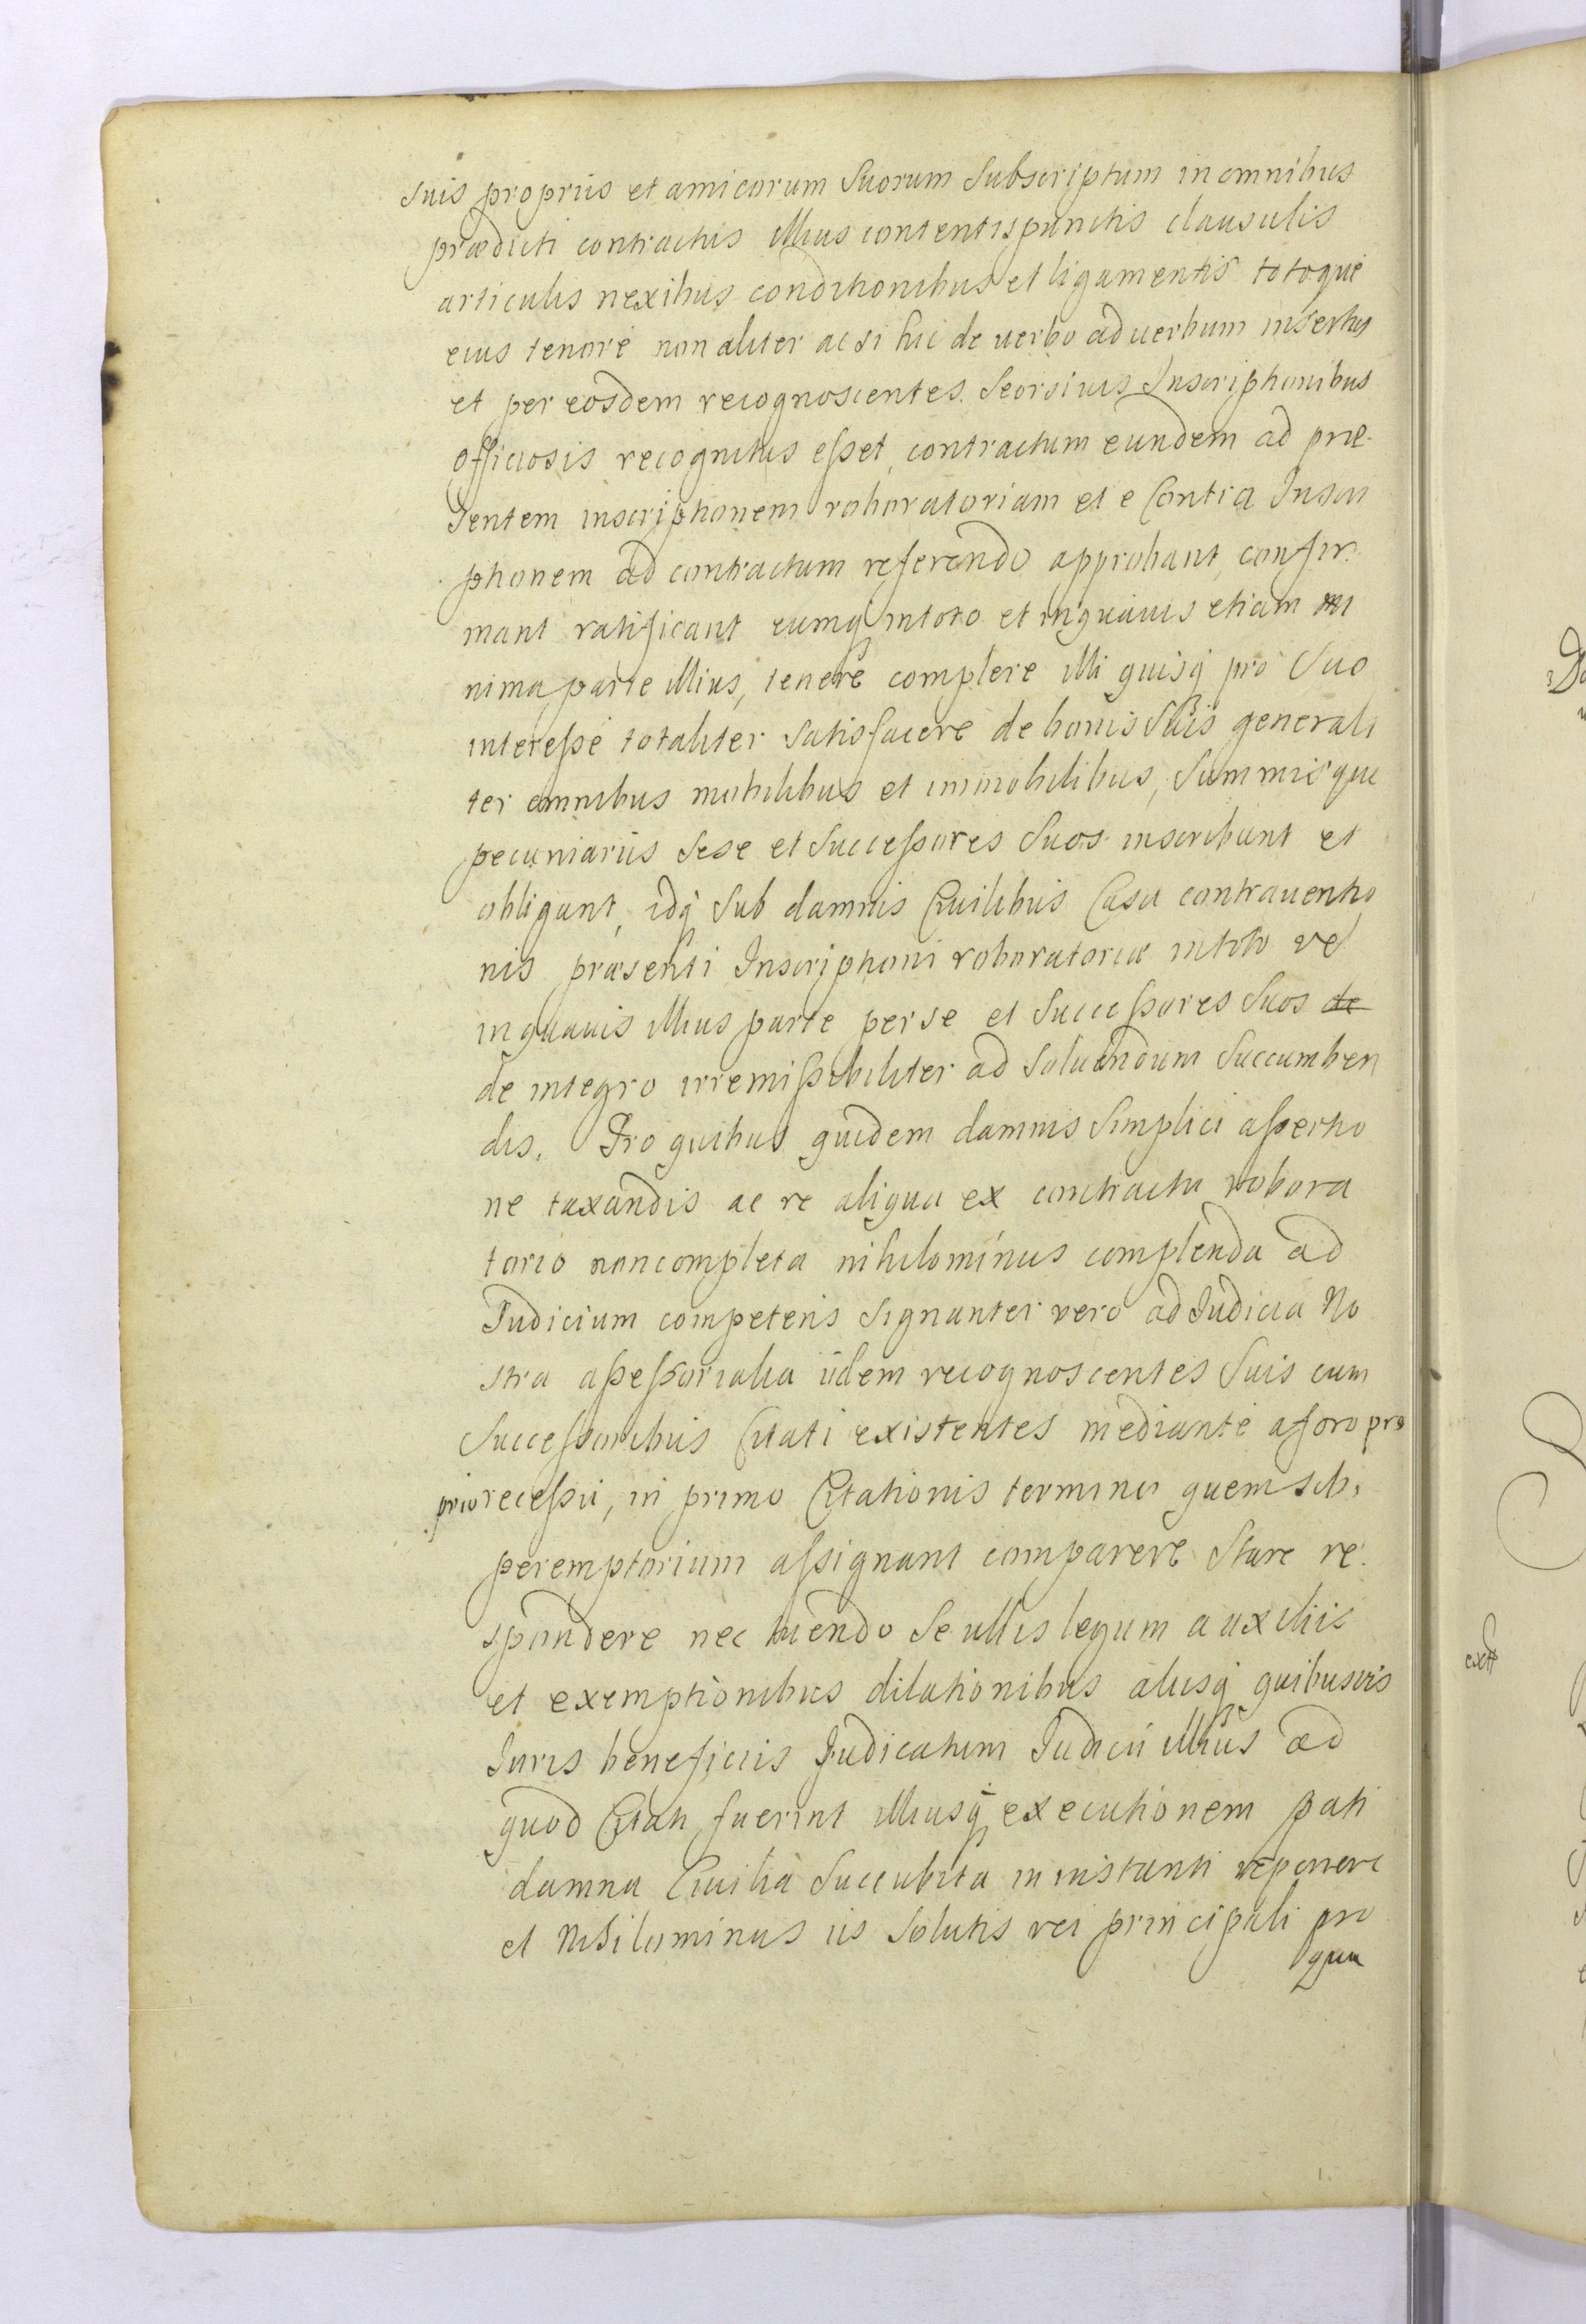 suis propriis et amicorum Suorum Subscriptum in omnibus
prædicti contractus illius contentis punctis clausulis
articulis nexibus conditionibus et ligamentis totoque
eius tenore non aliter ac si hic de uerbo ad uerbum insertus
et per eosdem recognoscentes Seorsiuis Inscriptionibus
officiosis recognitus esset, contractum eundem ad præ-
sentem inscriptionem roboratoriam et e Contra Inscri
ptionem ad contractum referendo approbant, confir-
mant ratificant eumq in toto et in quauis etiam mi
nima parte illius, tenere complere illi quisq pro Suo
interesse totaliter Satisfacere de bonis Suis generali
ter omnibus mobilibus et immobilibus, Summisque
pecuniariis Sese et Successores Suos inscribunt et
obligant, idq Sub damnis Ciuilibus Casu contrauentio
nis præsenti Inscriptioni roboratoriæ in toto vel
in quauis illius parte per se et Successores Suos de
de integro irremissibiliter ad Soluendum Succumben
dis. Pro quibus quidem damnis Simplici assertio
ne taxandis ac re aliqua ex contractu robora
torio non completa nihilominus complenda ad
Judicium competens Signanter vero ad Judicia No
stra assessorialia iidem recognoscentes Suis cum
Successoribus Citati existentes mediante a foro pro
prio recessu, in primo Citationis termino quem sibi
peremptorium assignant comparere Stare re-
spondere nec tuendo Se ullis legum auxiliis
et exemptionibus dilationibus aliisq quibusuis
Juris beneficiis Judicatum Judicii illius ad
quod Citati fuerint illiusq executionem pati
damna Ciuilia Succubita in instanti reponere
et Nihilominus iis Solutis rei principali pro
qua
exst